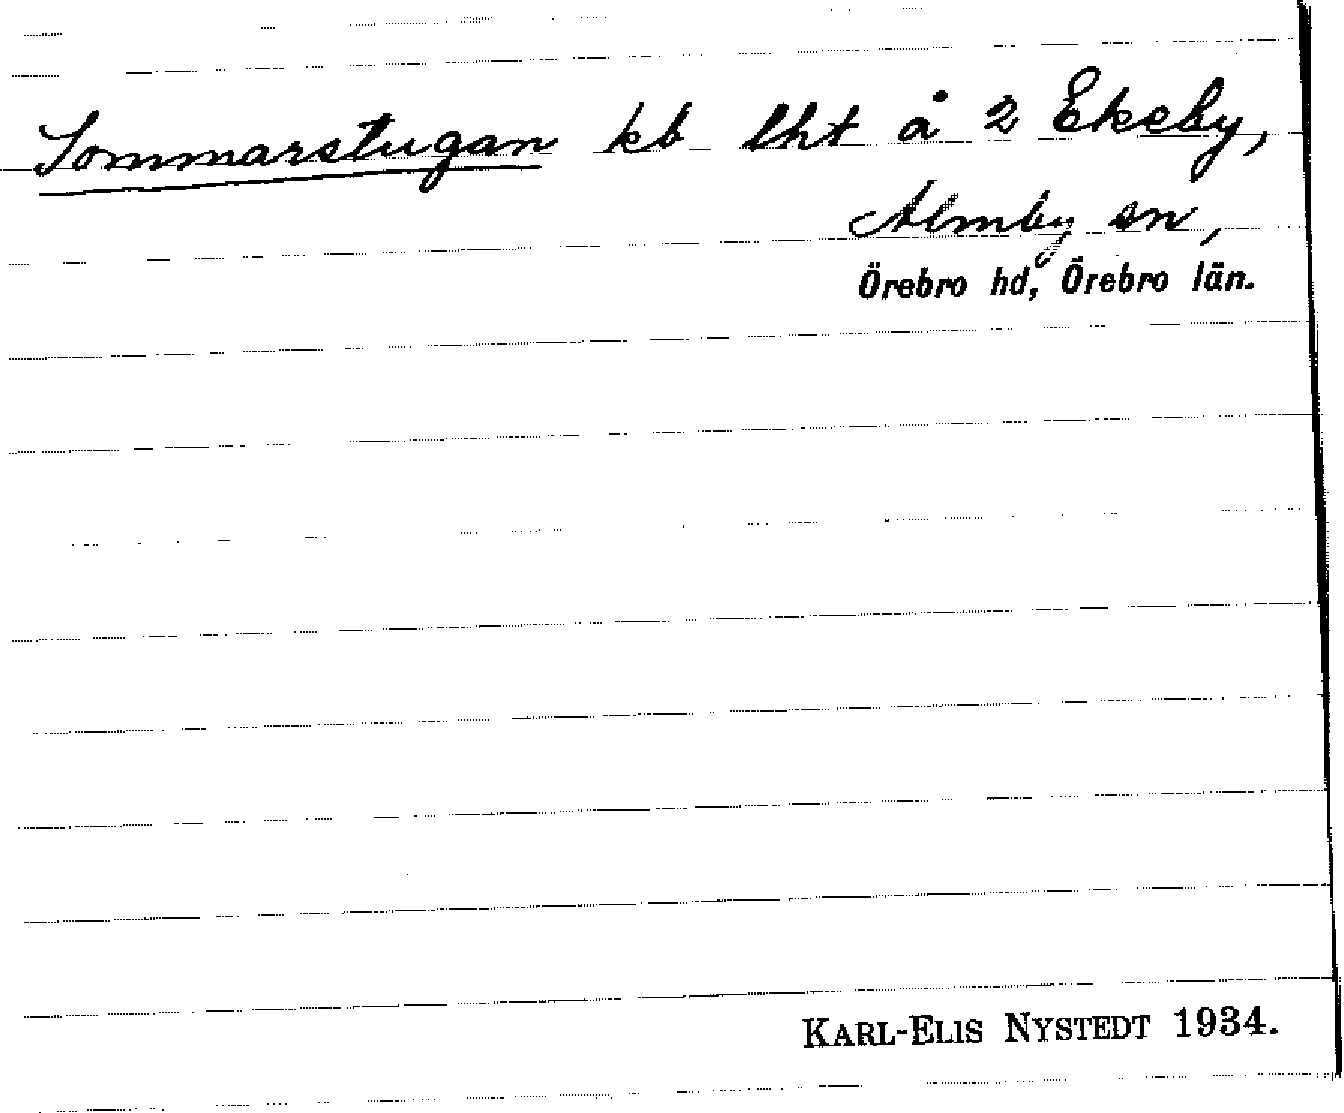 Sommarstugan kb lht å 2 Ekeby,
Almby sn,
Örebro hd, Örebro län.
KARL-ELIS NYSTEDT 1934.